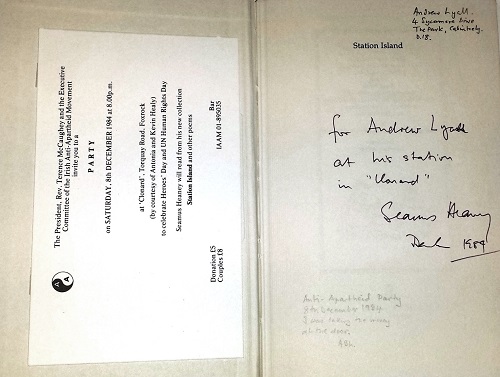 The President, Rev. Terence McCaughey and the Executive
Committee of the Irish Anti-Apartheid Movement
invite you to a
PARTY
on SATURDAY, 8th DECEMBER 1984 at 8.00p.m.
at 'Clonard', Torquay Road, Foxrock
(by courtesy of Antonia and Kevin Healy)
to celebrate Heroes' Day and UN Human Rights Day
Seamus Heaney will read from his new collection
Station Island and other poems
Donation £5
Couples £8
Bar
IAAM 01-895035
A A
Andrew Lyall
4 Sycamore Drive
The Park, Cabinteely.
D.18.
Station Island
for Andrew Lyall
at his station
in "Clonard"
Seamus Heaney
Dec 1984
Anti-Apartheid Party
8th December 1984
I was taking the money
at the door.